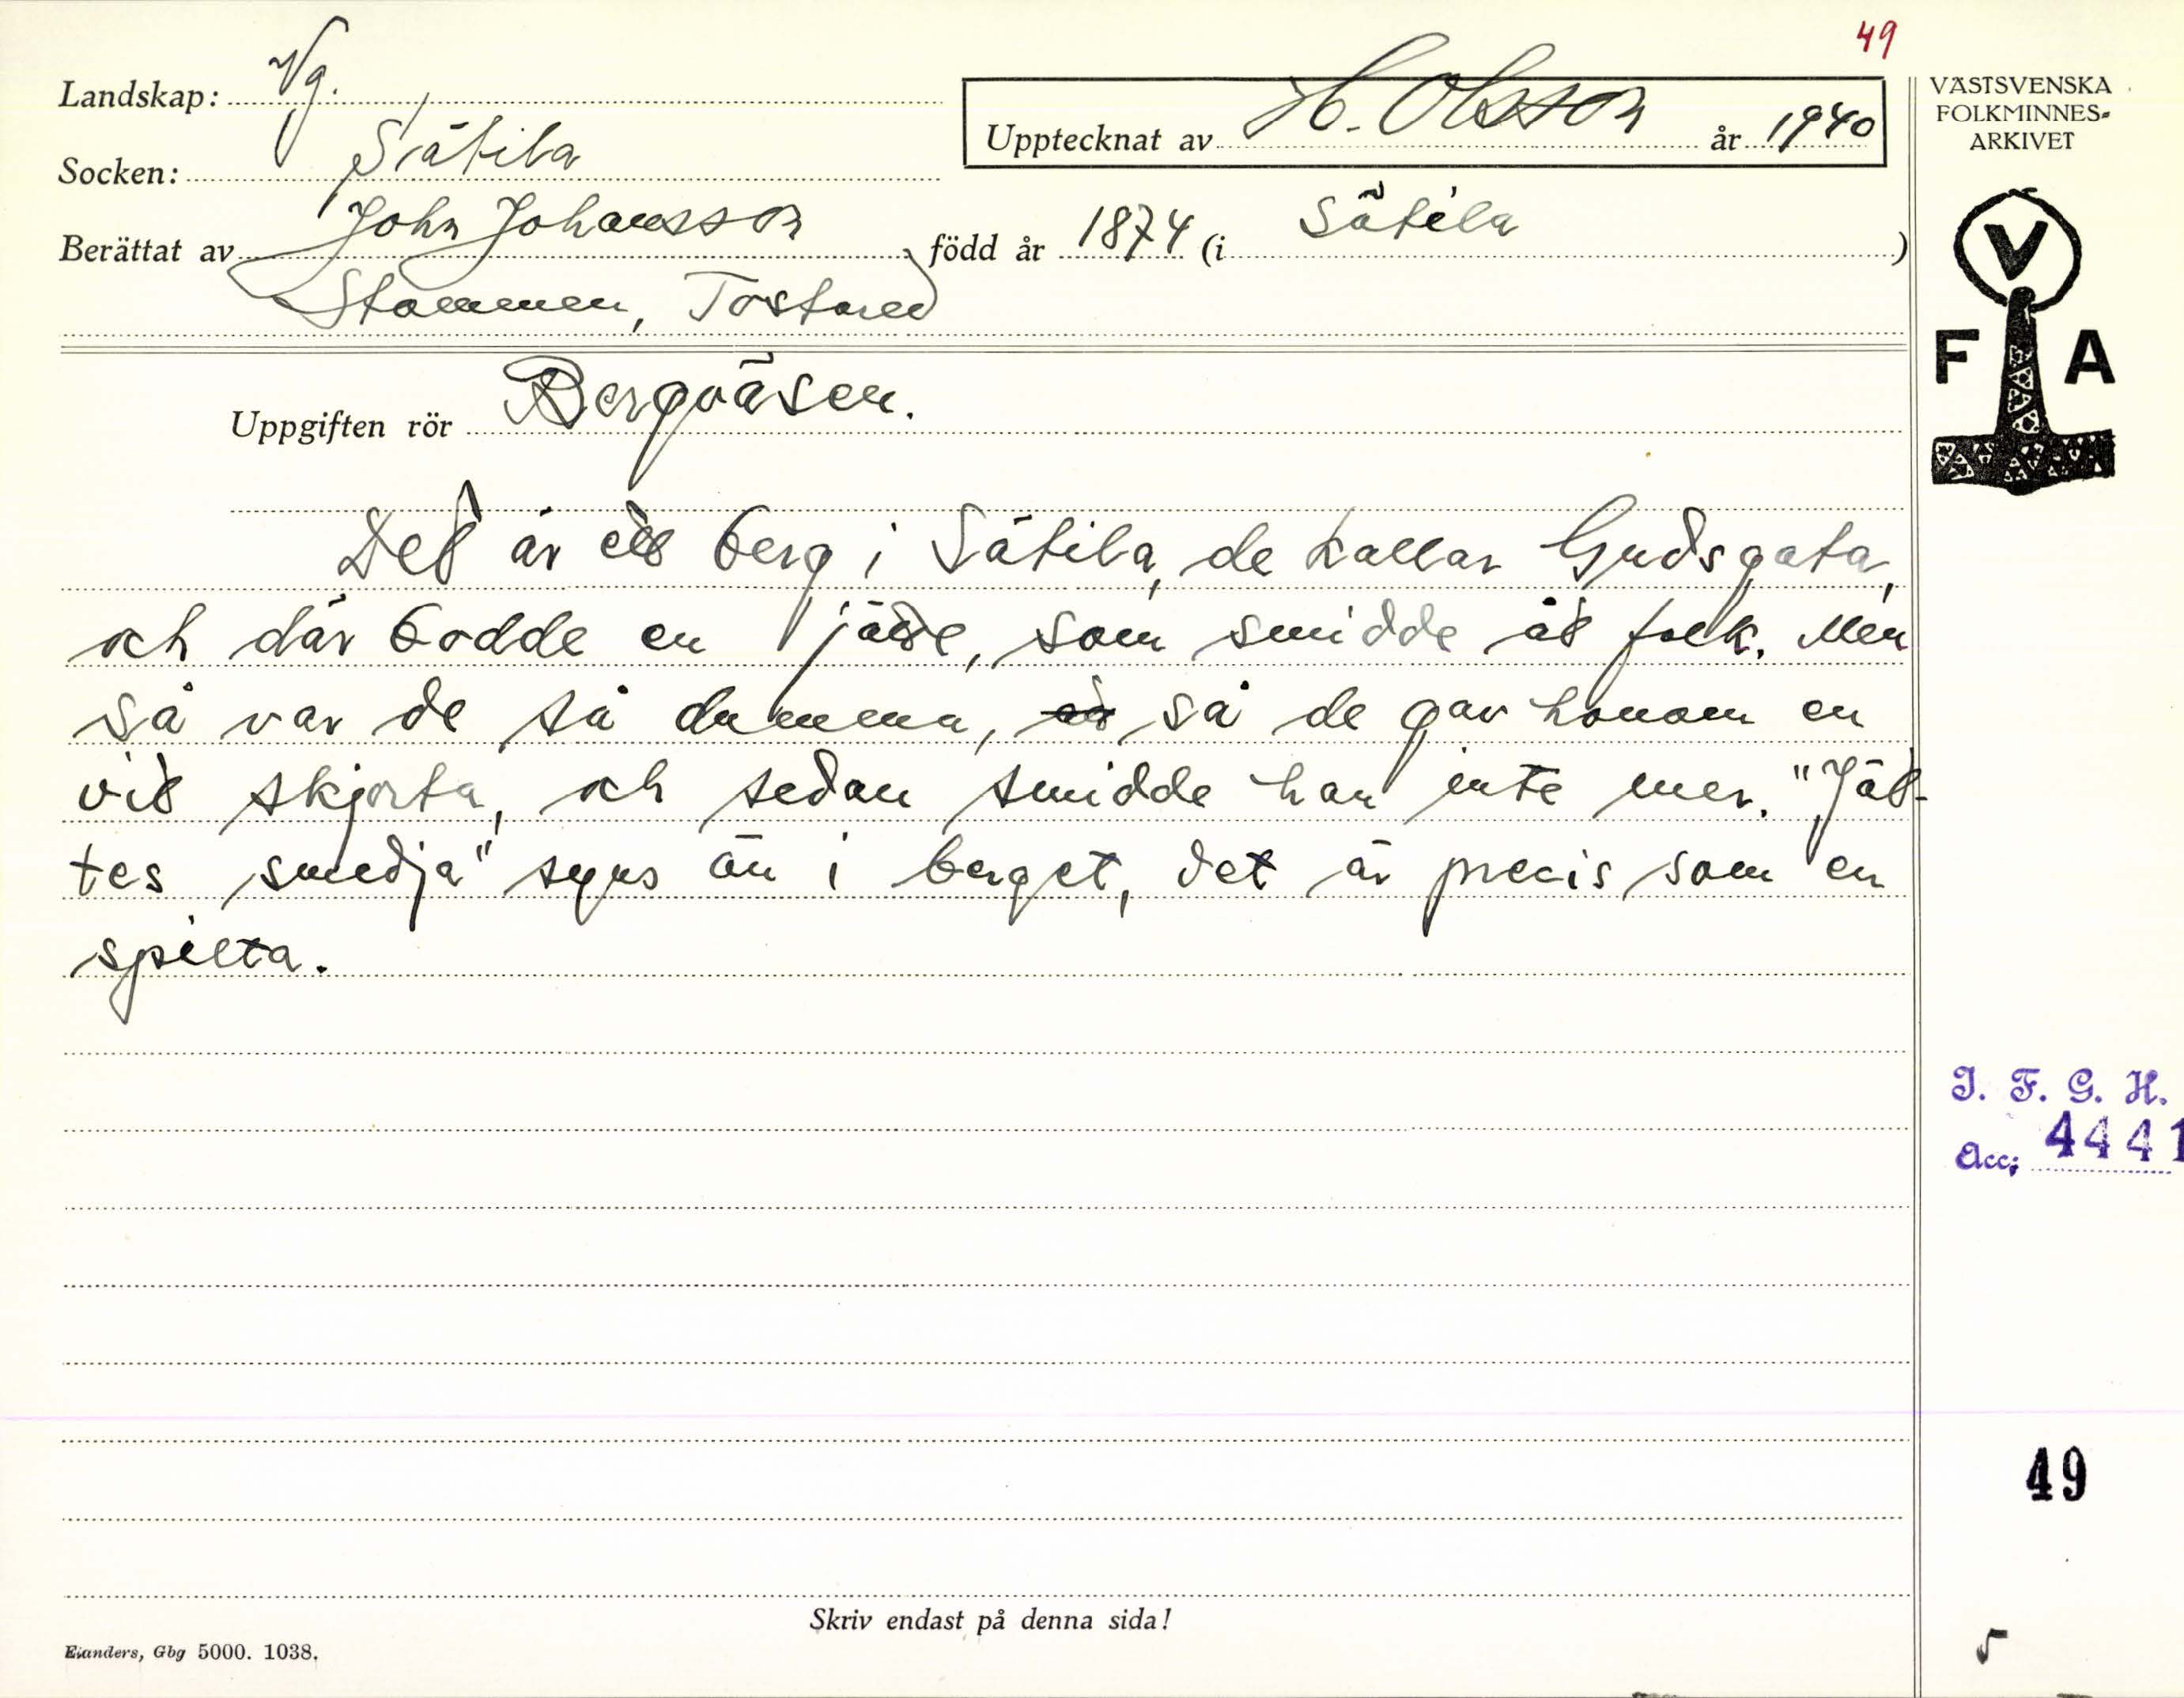 49
Landskap: Vg.
Socken: Sätila
Upptecknat av H. Olsson år 1940
Berättat av John Johansson född år 1874 (i Sätila)
Stommen, Tostared
Uppgiften rör Bergväsen.
Det är ett berg i Sätila, de kallar Gudsgata,
och där bodde en jätte, som smidde åt folk. Men
så var de så dumma, så de gav honom en
vit skjorta, och sedan smidde han inte mer. "Jät-
tes smedja" syns än i berget, det är precis som en
spilta.
VÄSTSVENSKA
FOLKMINNES-
ARKIVET
V
F A
I. F. G. H.
Acc; 4441
49
5
Skriv endast på denna sida!
Elanders, Gbg 5000. 1038.